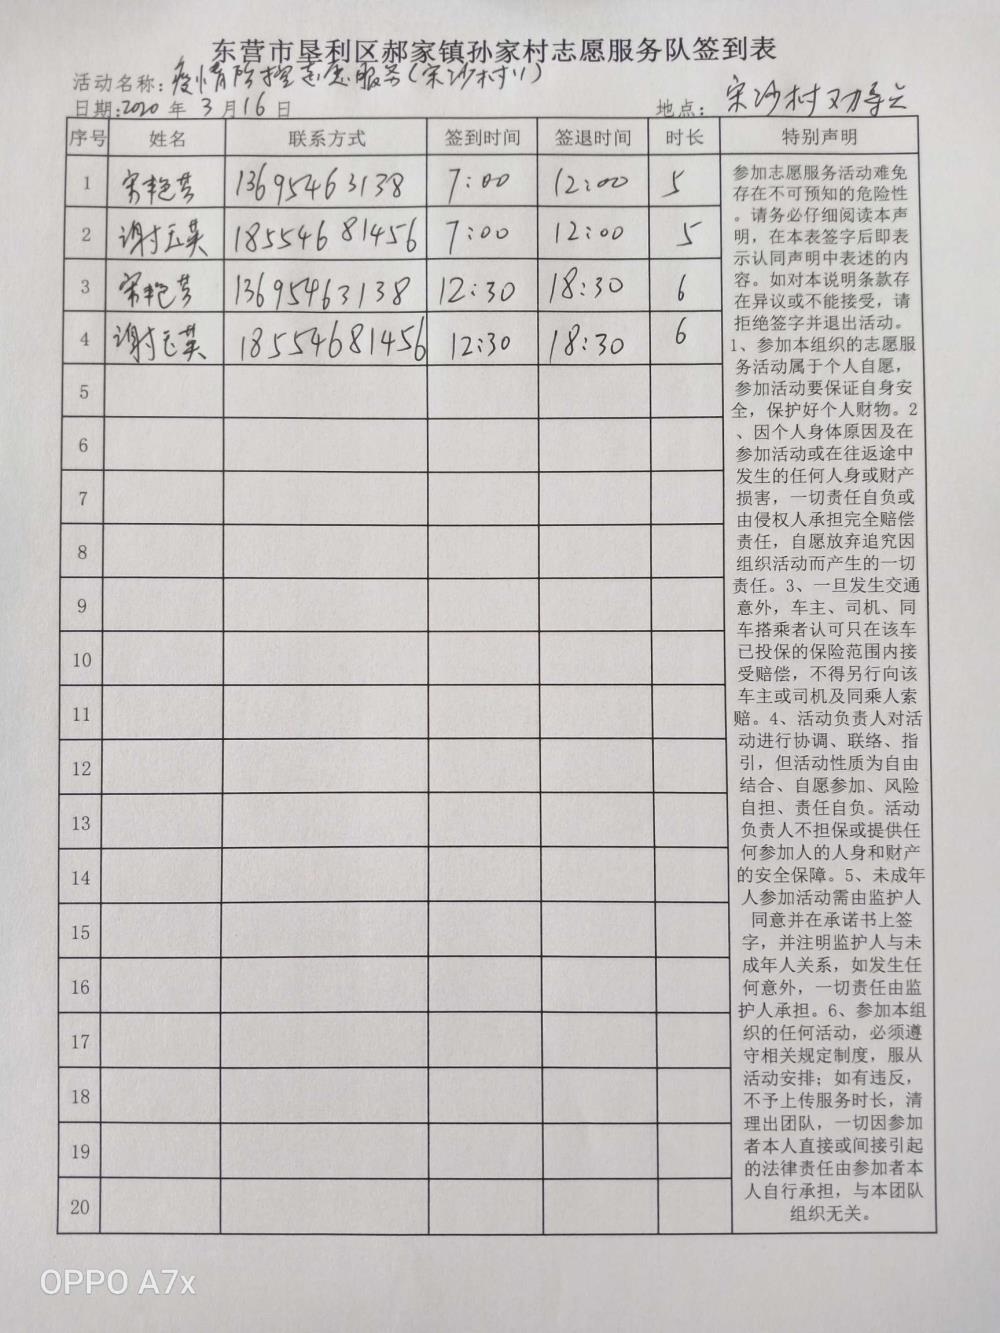 东营市垦利区郝家镇孙家村志愿服务队签到表
活动名称:疫情防控志愿服务(宋沙村)
日期:2020 年 3 月 16 日 地点: 宋沙村
序号 姓名 联系方式 签到时间 签退时间 时长 特别声明
1 宋艳芳 13695463138 7:00 12:00 5
2 谢玉英 18554681456 7:00 12:00 5
3 宋艳芳 13695463138 12:30 18:30 6
4 谢玉英 18554681456 12:30 18:30 6
5
6
7
8
9
10
11
12
13
14
15
16
17
18
19
20
参加志愿服务活动难免
存在不可预知的危险性
。请务必仔细阅读本声
明，在本表签字后即表
示认同声明中表述的内
容。如对本说明条款存
在异议或不能接受，请
拒绝签字并退出活动。
1、参加本组织的志愿服
务活动属于个人自愿，
参加活动要保证自身安
全，保护好个人财物。2
、因个人身体原因及在
参加活动或在往返途中
发生的任何人身或财产
损害，一切责任自负或
由侵权人承担完全赔偿
责任，自愿放弃追究因
组织活动而产生的一切
责任。3、一旦发生交通
意外，车主、司机、同
车搭乘者认可只在该车
已投保的保险范围内接
受赔偿，不得另行向该
车主或司机及同乘人索
赔。4、活动负责人对活
动进行协调、联络、指
引，但活动性质为自由
结合、自愿参加、风险
自担、责任自负。活动
负责人不担保或提供任
何参加人的人身和财产
的安全保障。5、未成年
人参加活动需由监护人
同意并在承诺书上签
字，并注明监护人与未
成年人关系，如发生任
何意外，一切责任由监
护人承担。6、参加本组
织的任何活动，必须遵
守相关规定制度，服从
活动安排；如有违反，
不予上传服务时长，清
理出团队，一切因参加
者本人直接或间接引起
的法律责任由参加者本
人自行承担，与本团队
组织无关。
OPPO A7x